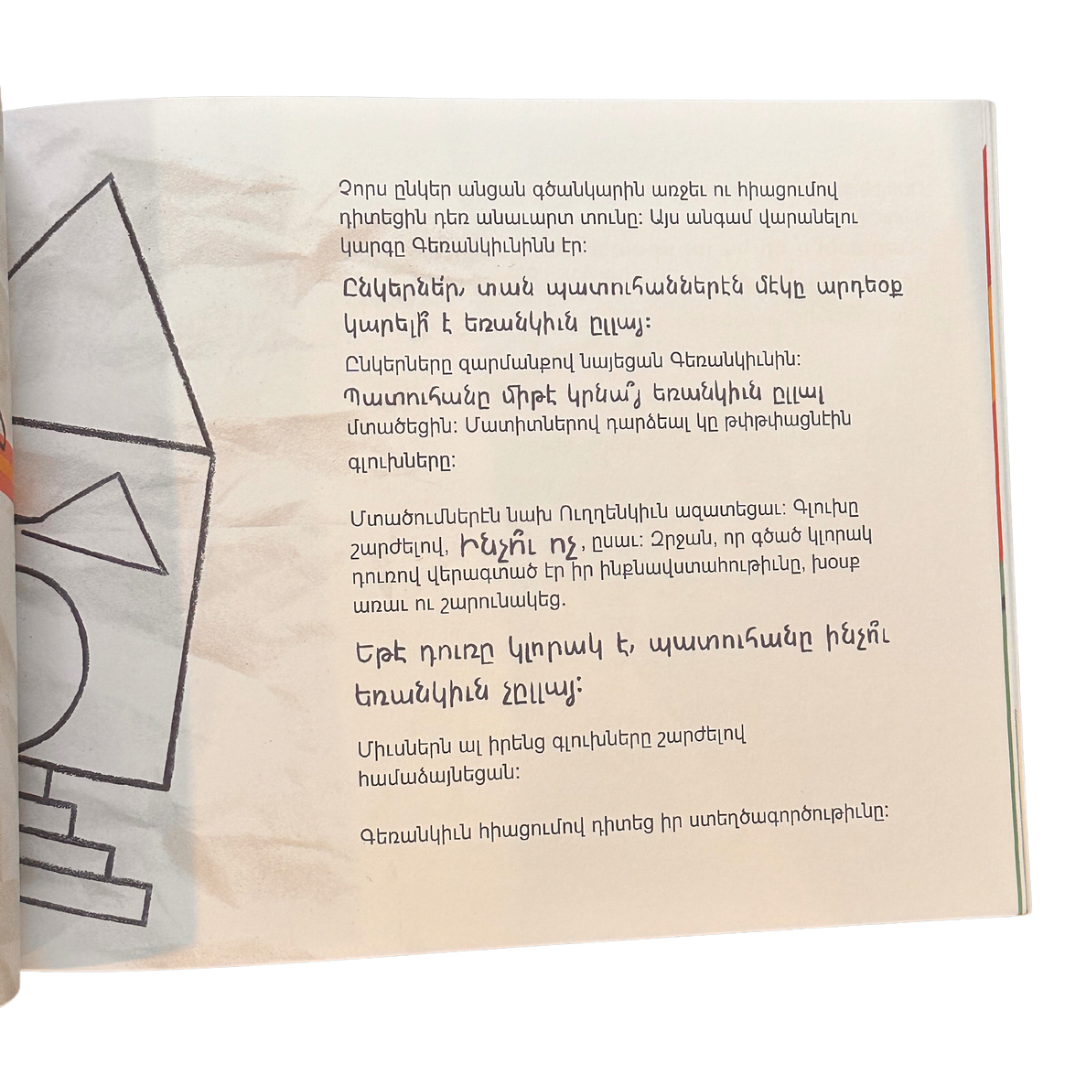 Չորս ընկեր անցան գծանկարին առջեւ ու հիացումով
դիտեցին դեռ անաւարտ տունը։ Այս անգամ վարանելու
կարգը Գեռանկիւնինն էր։
Ընկերնե՛ր, տան պատուհաններէն մէկը արդեօք
կարելի՞ է եռանկիւն ըլլայ։
Ընկերները զարմանքով նայեցան Գեռանկիւնին։
Պատուհանը միթէ կրնա՞յ եռանկիւն ըլլալ
մտածեցին։ Մատիտներով դարձեալ կը թփթփացնէին
գլուխները։
Մտածումներէն նախ Ուղղենկիւն ազատեցաւ։ Գլուխը
շարժելով, Ինչո՞ւ ոչ, ըսաւ։ Զրջան, որ գծած կլորակ
դուռով վերագտած էր իր ինքնավստահութիւնը, խօսք
առաւ ու շարունակեց.
Եթէ դուռը կլորակ է, պատուհանը ինչո՞ւ
եռանկիւն չըլլայ։
Միւսներն ալ իրենց գլուխները շարժելով
համաձայնեցան։
Գեռանկիւն հիացումով դիտեց իր ստեղծագործութիւնը։